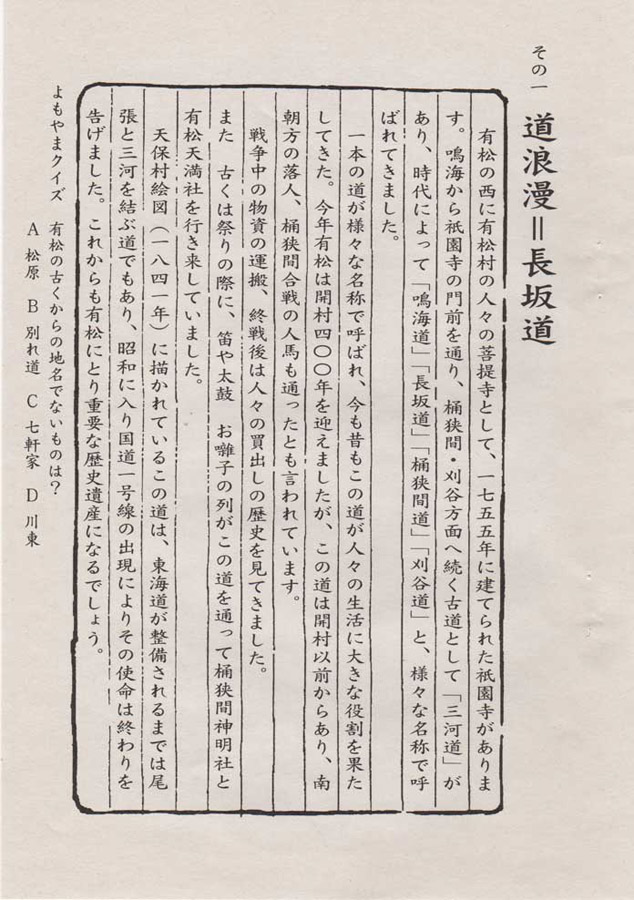 その一
道浪漫＝長坂道
有松の西に有松村の人々の菩提寺として、一七五五年に建てられた祇園寺がありま
す。鳴海から祇園寺の門前を通り、桶狭間・刈谷方面へ続く古道として「三河道」が
あり、時代によって「鳴海道」「長坂道」「桶狭間道」「刈谷道」と、様々な名称で呼
ばれてきました。
一本の道が様々な名称で呼ばれ、今も昔もこの道が人々の生活に大きな役割を果た
してきた。今年有松は開村四〇〇年を迎えましたが、この道は開村以前からあり、南
朝方の落人、桶狭間合戦の人馬も通ったとも言われています。
戦争中の物資の運搬、終戦後は人々の買出しの歴史を見てきました。
また　古くは祭りの際に、笛や太鼓　お囃子の列がこの道を通って桶狭間神明社と
有松天満社を行き来していました。
天保村絵図（一八四一年）に描かれているこの道は、東海道が整備されるまでは尾
張と三河を結ぶ道でもあり、昭和に入り国道一号線の出現によりその使命は終わりを
告げました。これからも有松にとり重要な歴史遺産になるでしょう。
よもやまクイズ　有松の古くからの地名でないものは？
A 松原　B 別れ道　C 七軒家　D 川東